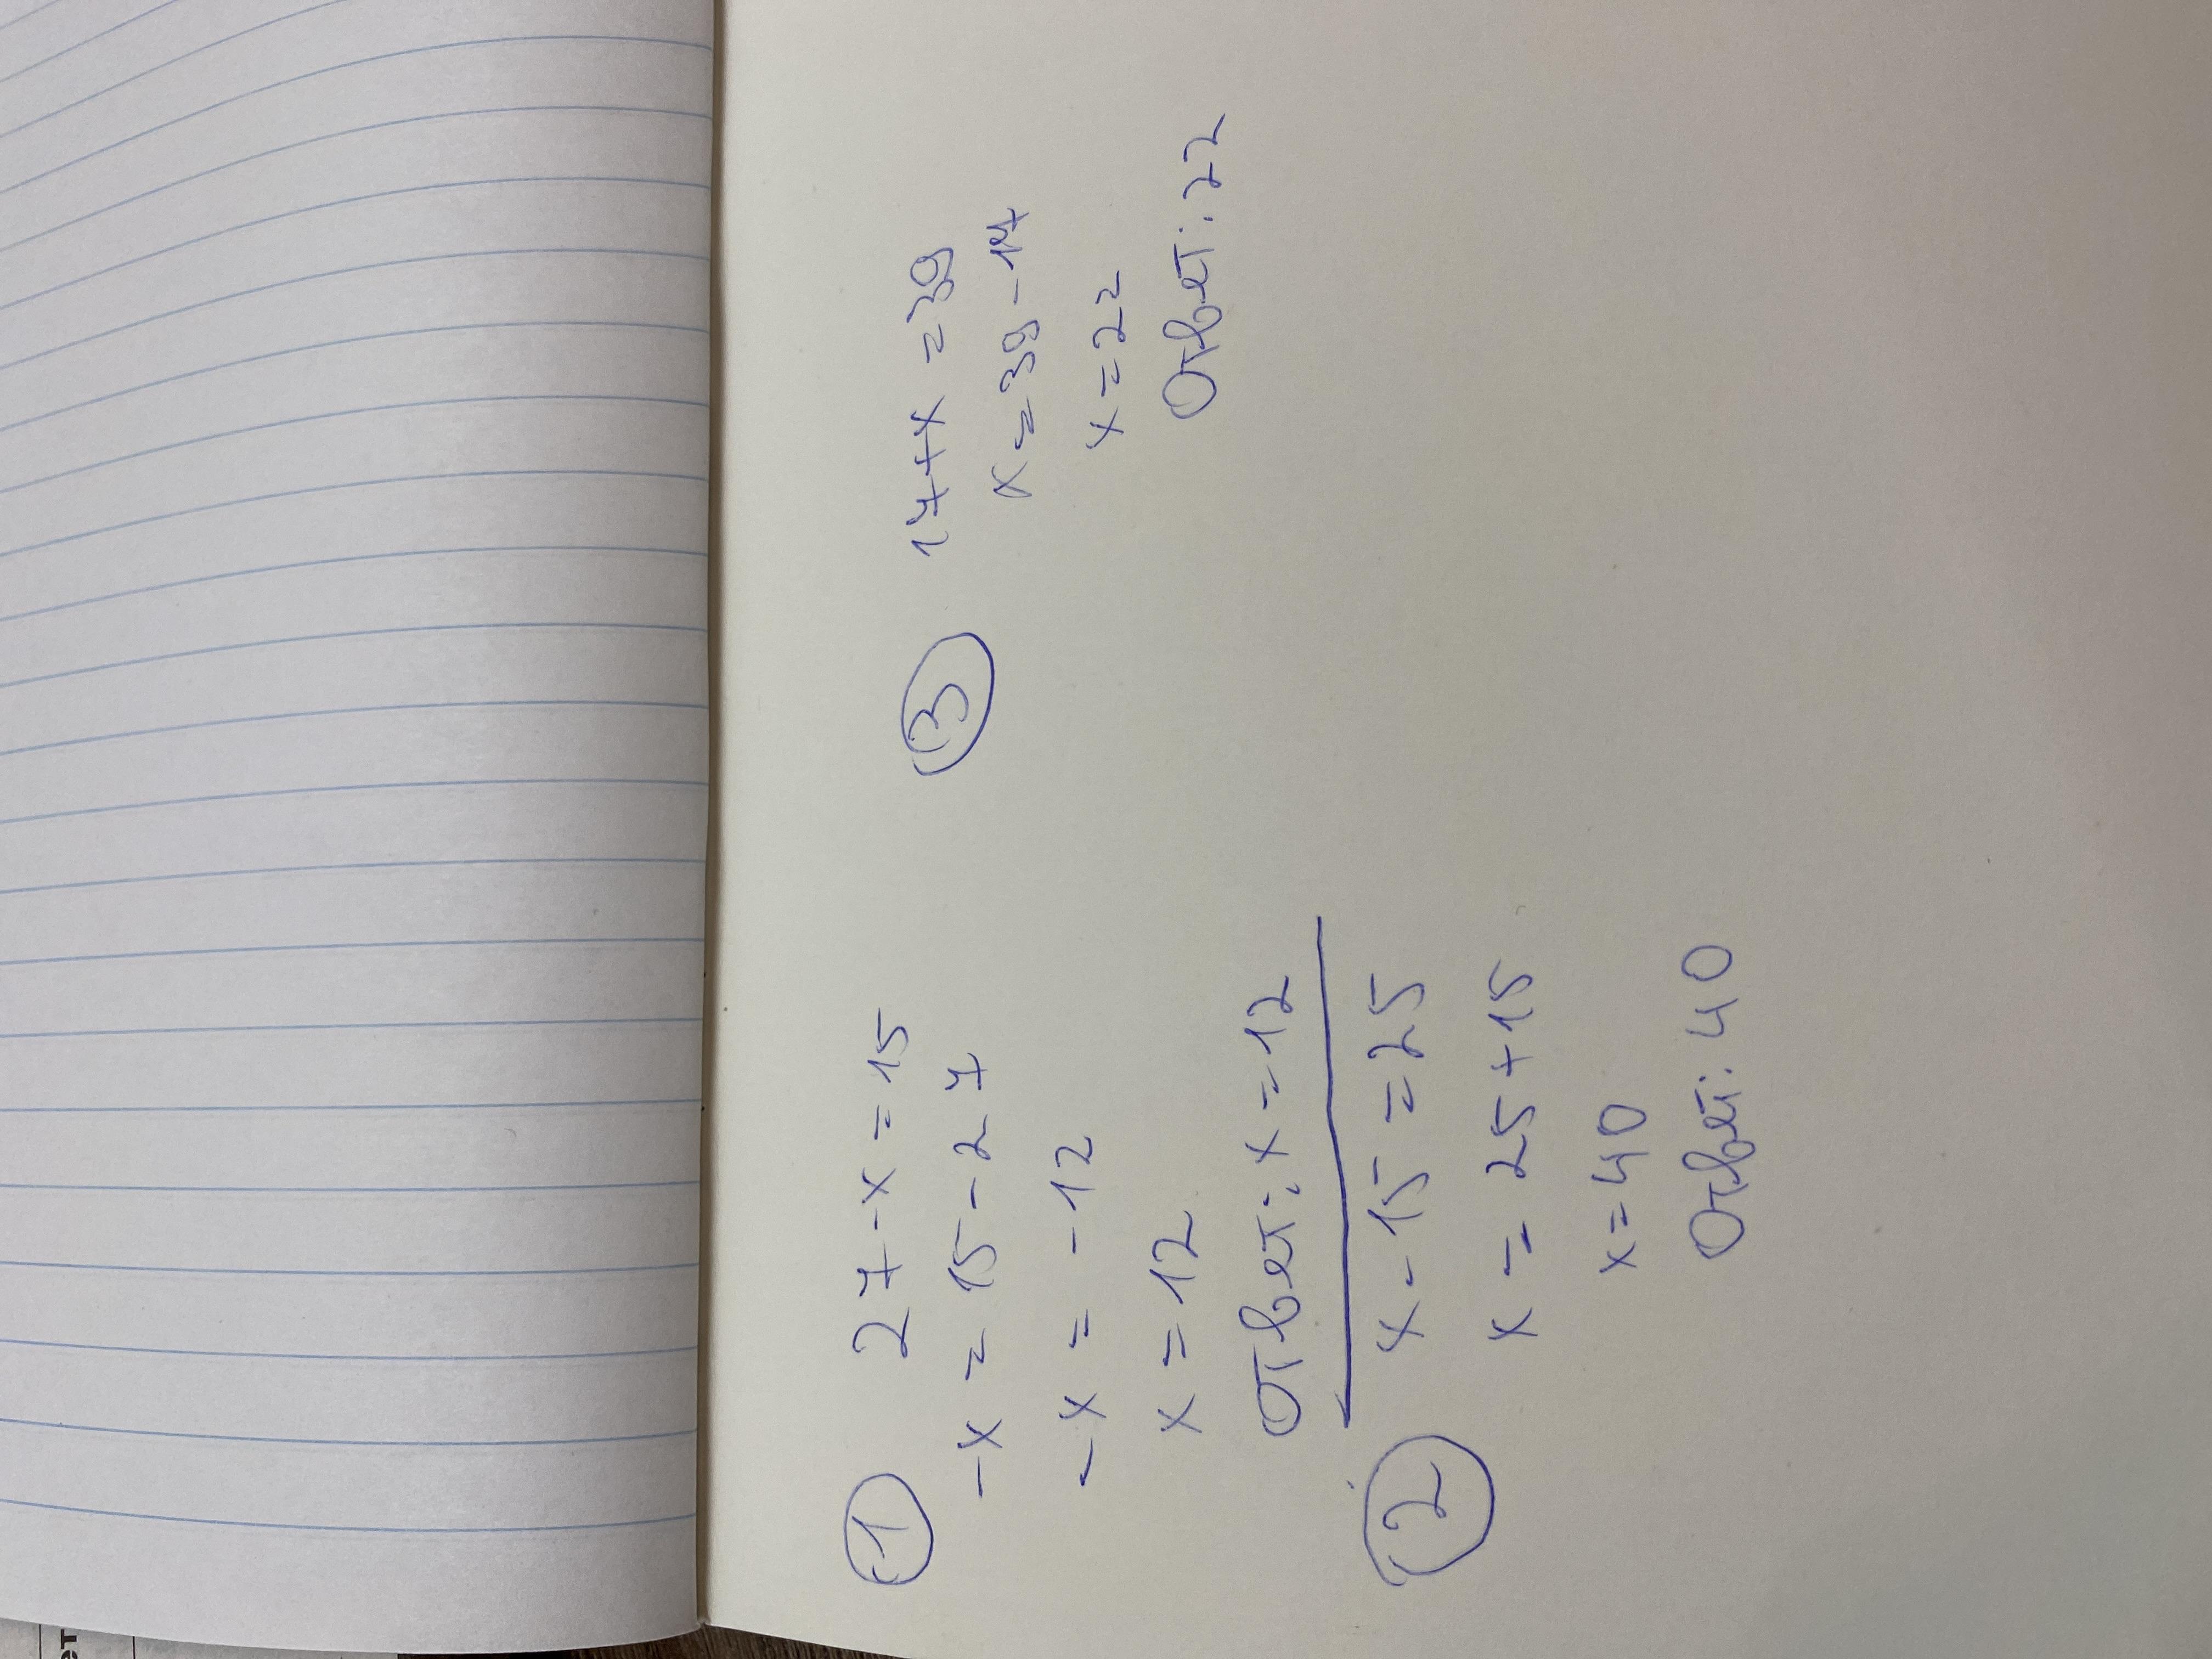 ① 27-x=15
-x = 15-27
-x = -12
x = 12
Ответ: x=12
② x-15=25
x = 25+15
x=40
Ответ: 40
③ 17+x=39
x=39-17
x=22
Ответ: 22